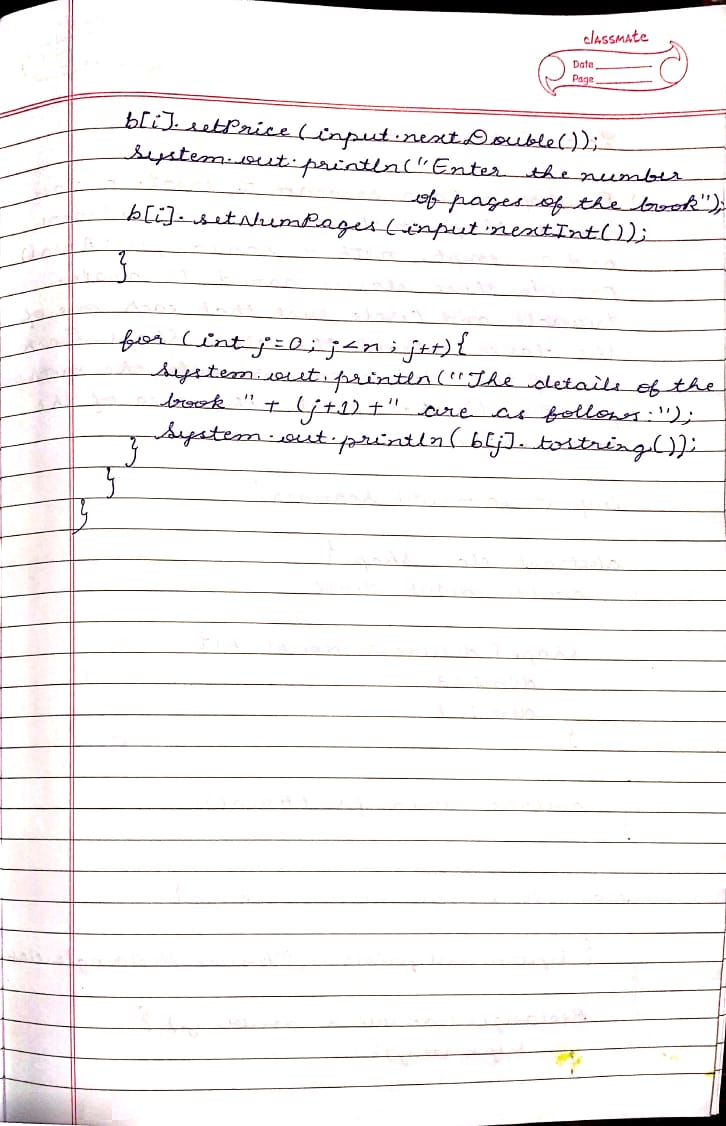 classmate
Date
Page
b[i].setPrice(input.nextDouble());
System.out.println("Enter the number
of pages of the book");
b[i].setNumPages(input.nextInt());
}
for (int j=0; j<n; j++){
System.out.println("The details of the
book " + (j+1) + " are as follows:");
System.out.println(b[j].tostring());
}
}
}